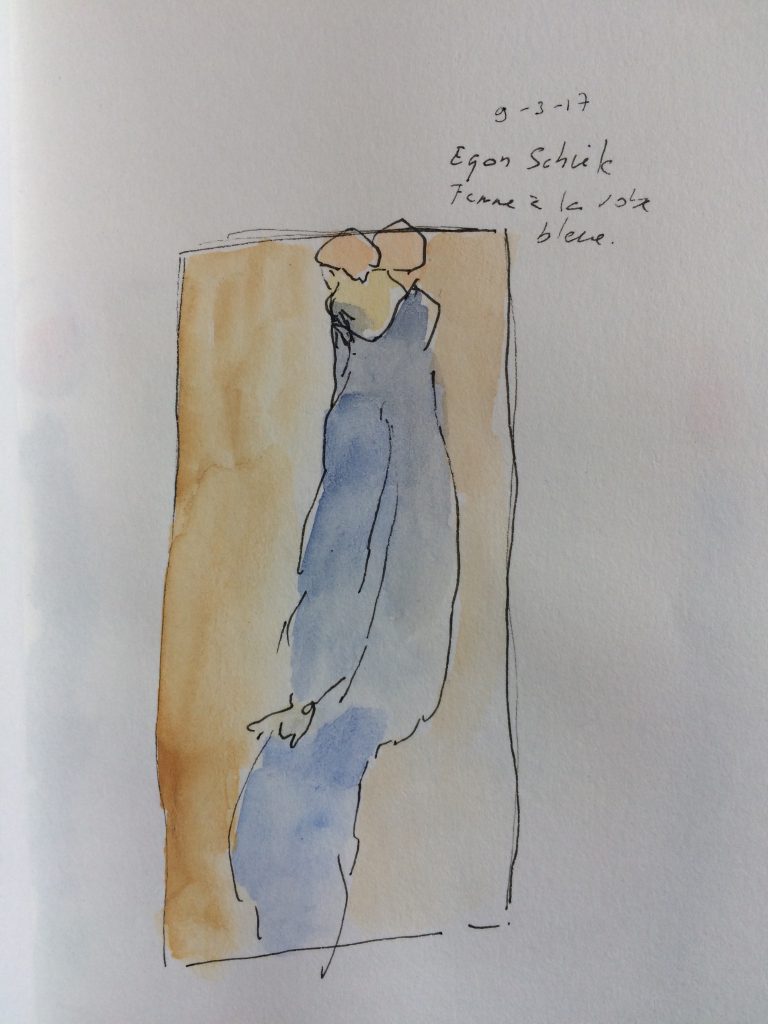 9-3-17
Egon Schiele
Femme à la robe
bleue.